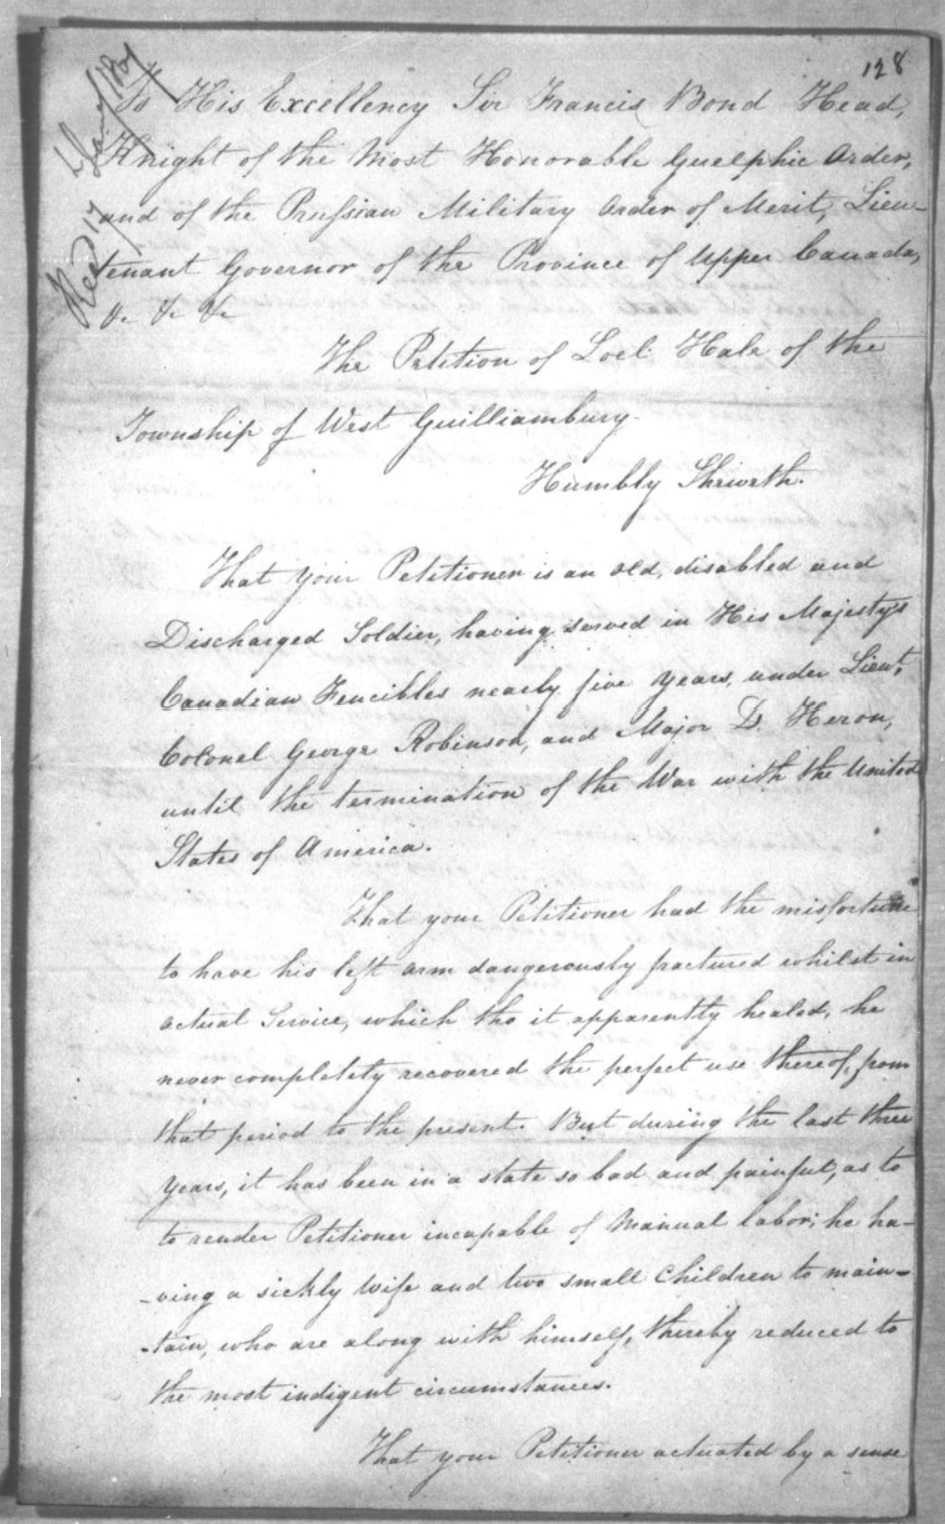 128
Recd 17
To His Excellency Sir Francis Bond Head,
Knight of the Most Honorable Guelphic Order,
and of the Prussian Military Order of Merit, Lieu-
tenant Governor of the Province of Upper Canada,
&c &c &c
The Petition of Loel Hale of the
Township of West Guilliambury.
Humbly Sheweth.
That your Petitioner is an old, disabled and
Discharged Soldier, having served in His Majesty's
Canadian Fencibles nearly five years, under Lieut.
Colonel George Robinson, and Major D. Heron,
until the termination of the War with the United
States of America.
That your Petitioner had the misfortune
to have his left arm dangerously fractured whilst in
actual Service, which tho it apparently healed, he
never completely recovered the perfect use thereof, from
that period to the present. But during the last three
years, it has been in a state so bad and painful, as to
to render Petitioner incapable of Manual labor; he ha-
-ving a sickly wife and two small Children to main-
-tain, who are along with himself, thereby reduced to
the most indigent circumstances.
That your Petitioner actuated by a sense